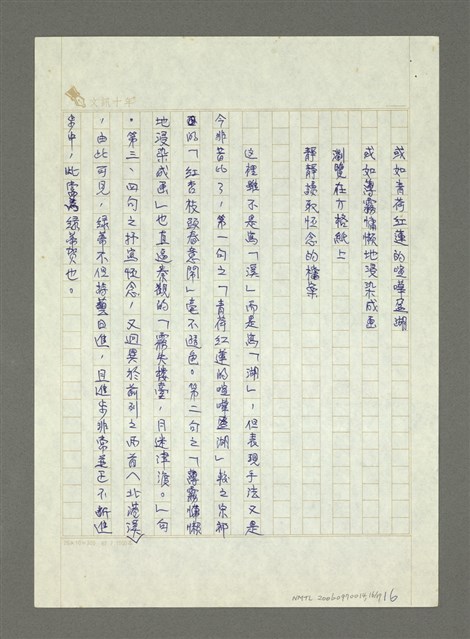 或如青荷紅蓮的喧嘩盛湖
或如薄霧慵懶地浸染成画
瀏覽在方格紙上
靜靜接取怔念的檔案
這裡雖不是寫「溪」而是寫「湖」，但表現手法又是
今非昔比了，第一句之「青荷紅蓮的喧嘩盛湖」較之宋祁
的「紅杏枝頭春意鬧」毫不遜色。第二句之「薄霧慵懶
地浸染成画」也直逼秦觀的「霧失樓臺，月迷津渡。」句
。第三、四句之抒寫怔念，又迥異於前列之两首〈北港溪〉
，由此可見，綠蒂不但詩藝日進，且進步非常並正不斷進
步中，此當為綠蒂賀也。
文訊十年
NMTL 20060970019
16